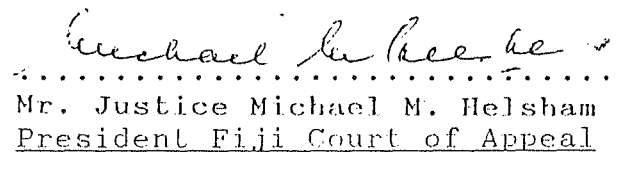 Michael
Mr. Justice Michael M. Helsham
President Fiji Court of Appeal